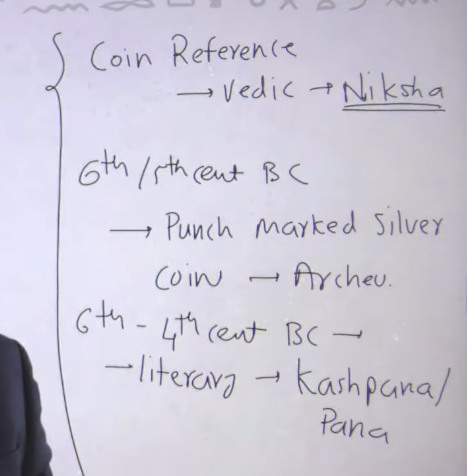 Coin Reference
→ Vedic → Niksha
6th/5th cent BC
→ Punch marked silver
coin → Archeu.
6th - 4th cent BC →
→ literary → Kashpana/
Pana